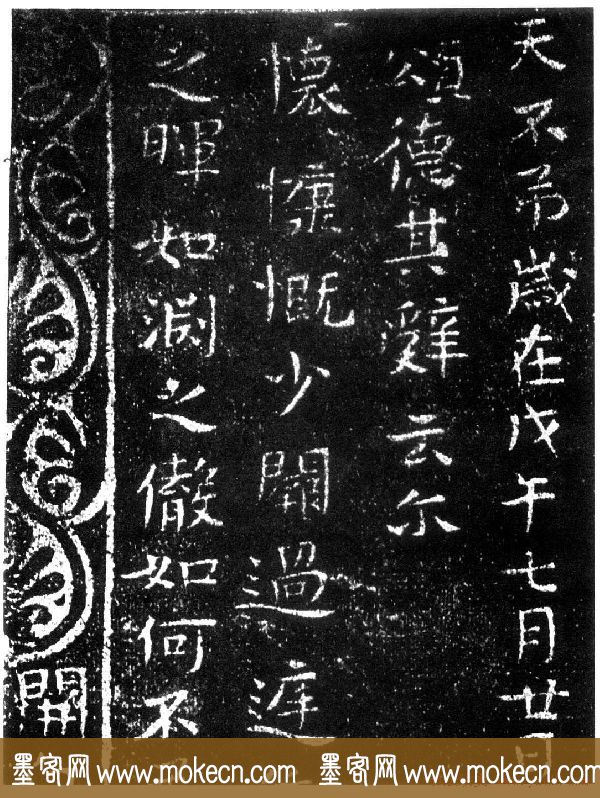 天不弔歲在戊午七月廿
頌德其辭云尒
懷慷慨少開過庭
之暉如淵之儆如何不
開
墨客网 www.mokecn.com 墨客网 www.mokecn.com